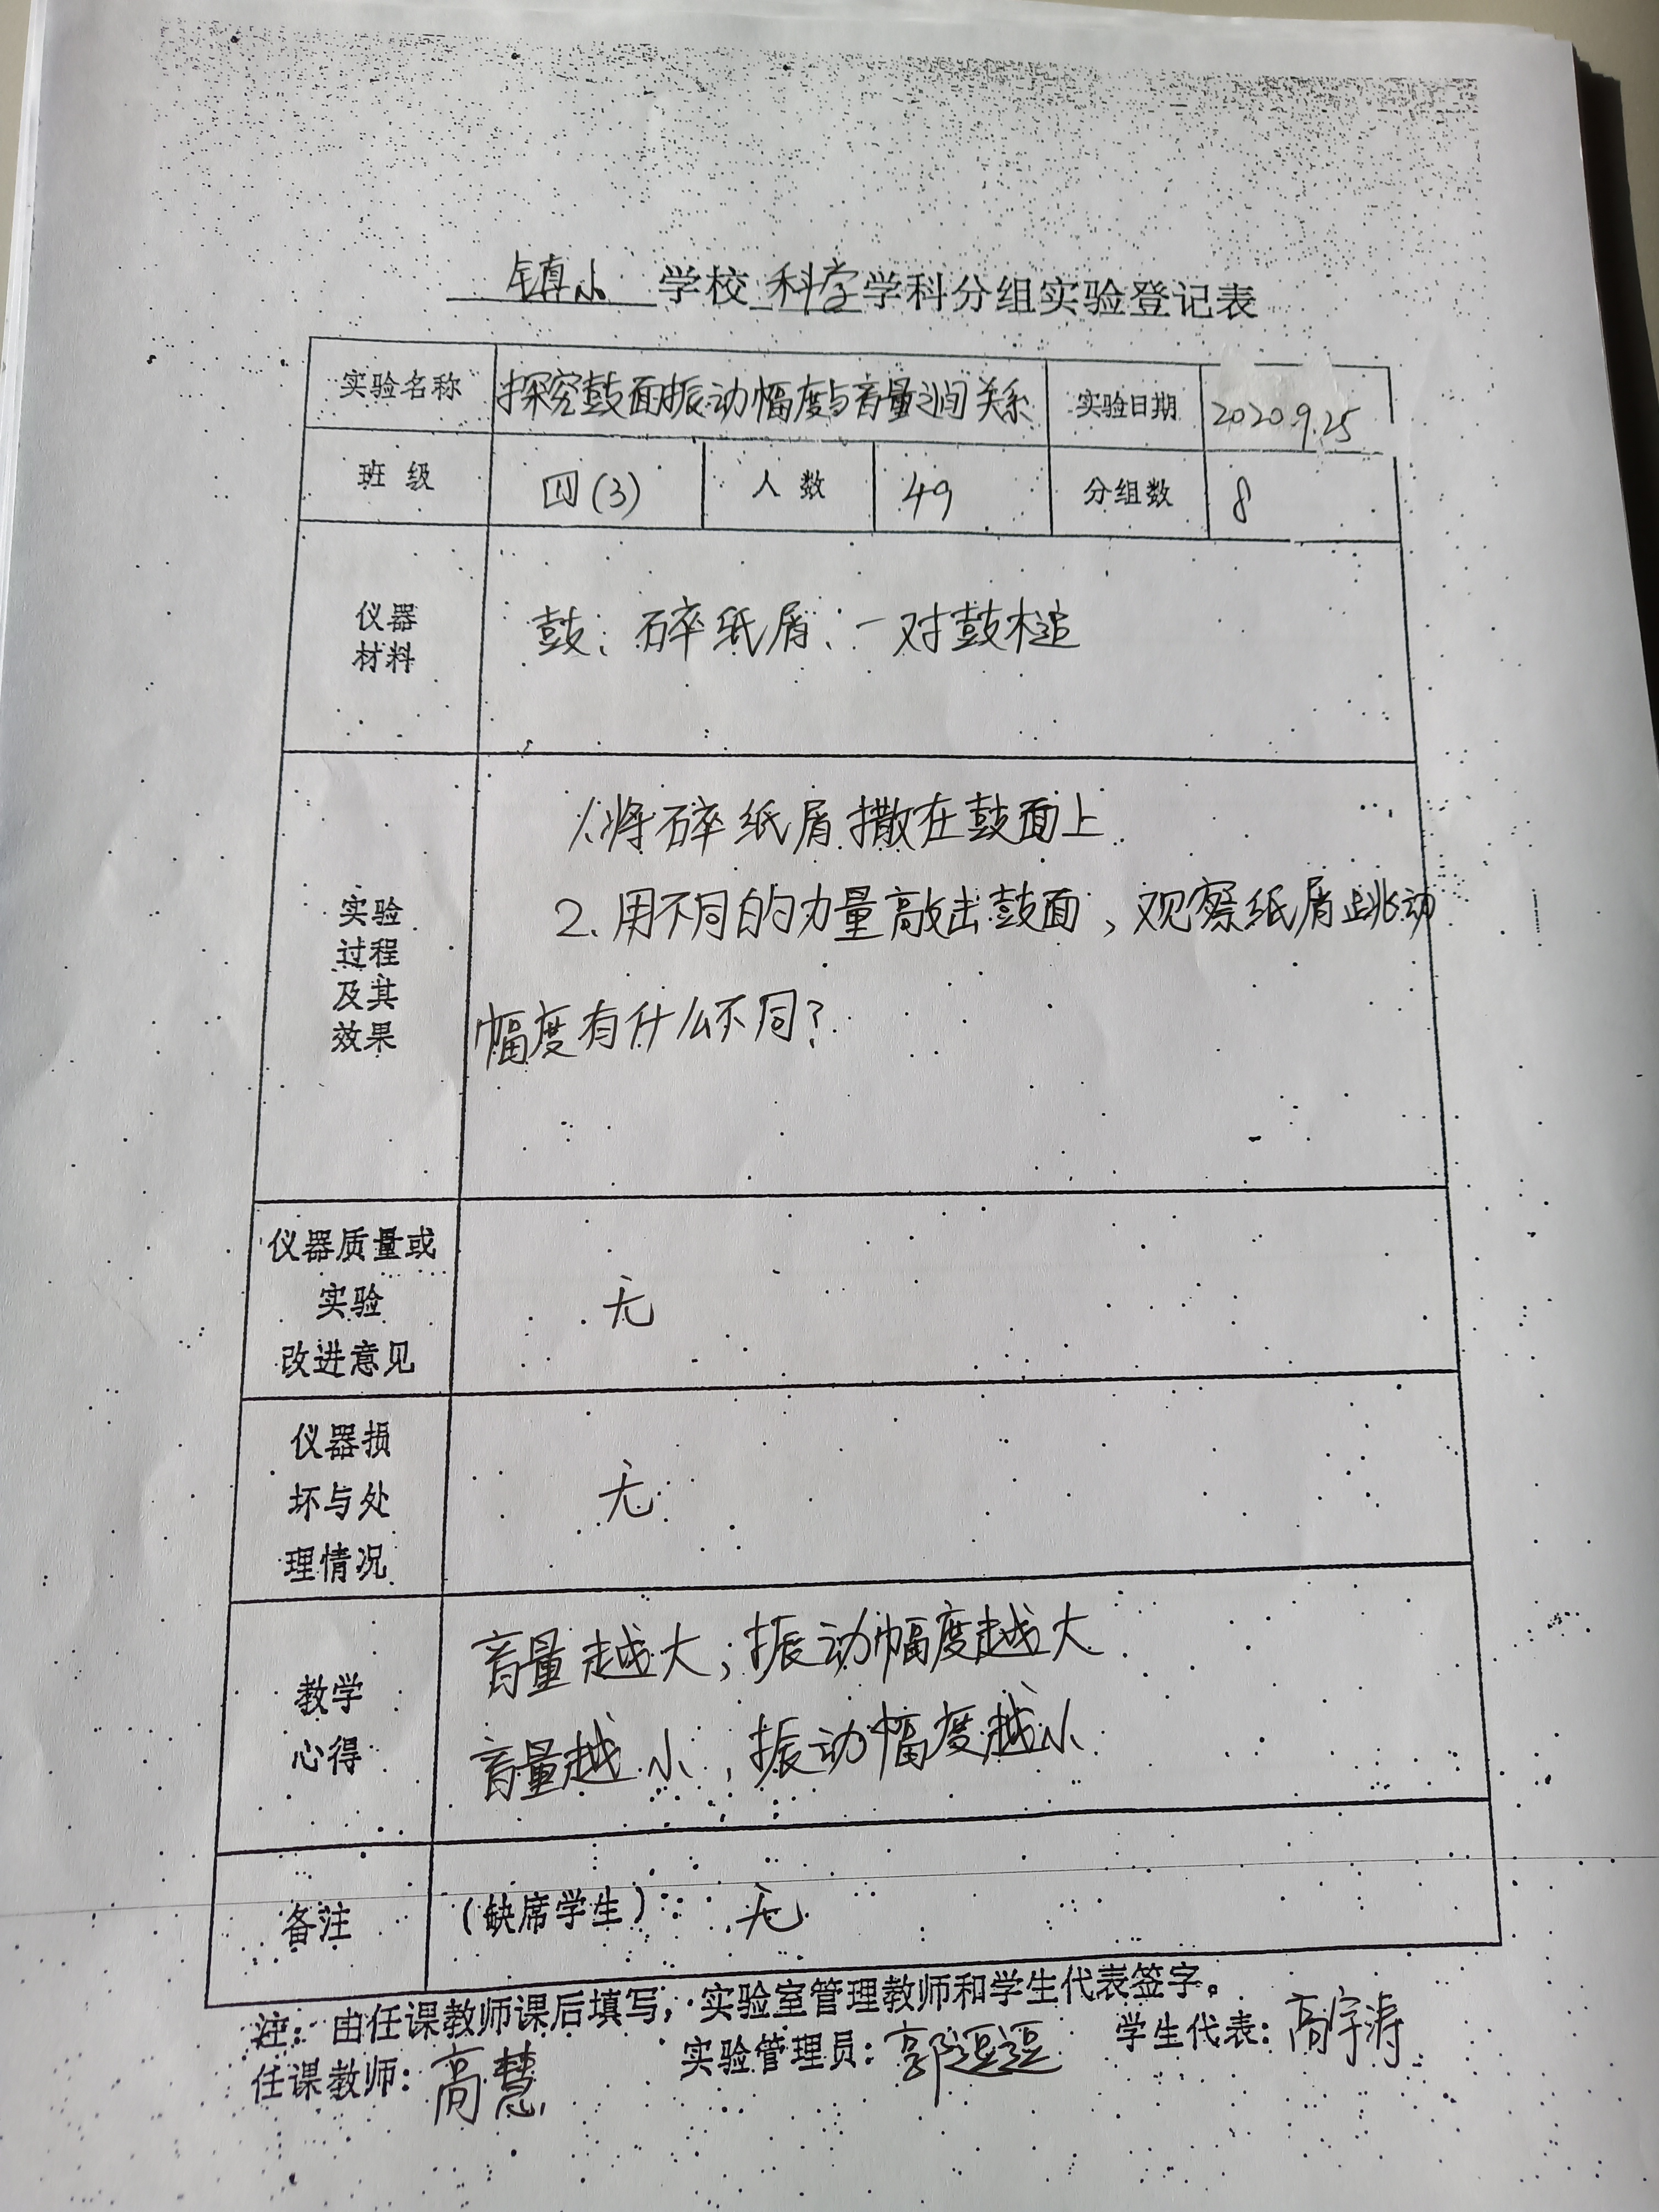 镇小 学校 科学 学科分组实验登记表
实验名称 探究鼓面振动幅度与音量之间关系 实验日期 2020.9.25
班级 四(3) 人数 49 分组数 8
仪器
材料
鼓、碎纸屑、一对鼓槌
实验
过程
及其
效果
1.将碎纸屑撒在鼓面上
2.用不同的力量敲击鼓面,观察纸屑跳动
幅度有什么不同?
仪器质量或
实验
改进意见
无
仪器损
坏与处
理情况
无
教学
心得
音量越大,振动幅度越大
音量越小,振动幅度越小
备注 (缺席学生): 无
注:由任课教师课后填写,实验室管理教师和学生代表签字。
任课教师:高慧 实验管理员:郭逗逗 学生代表:高宇涛